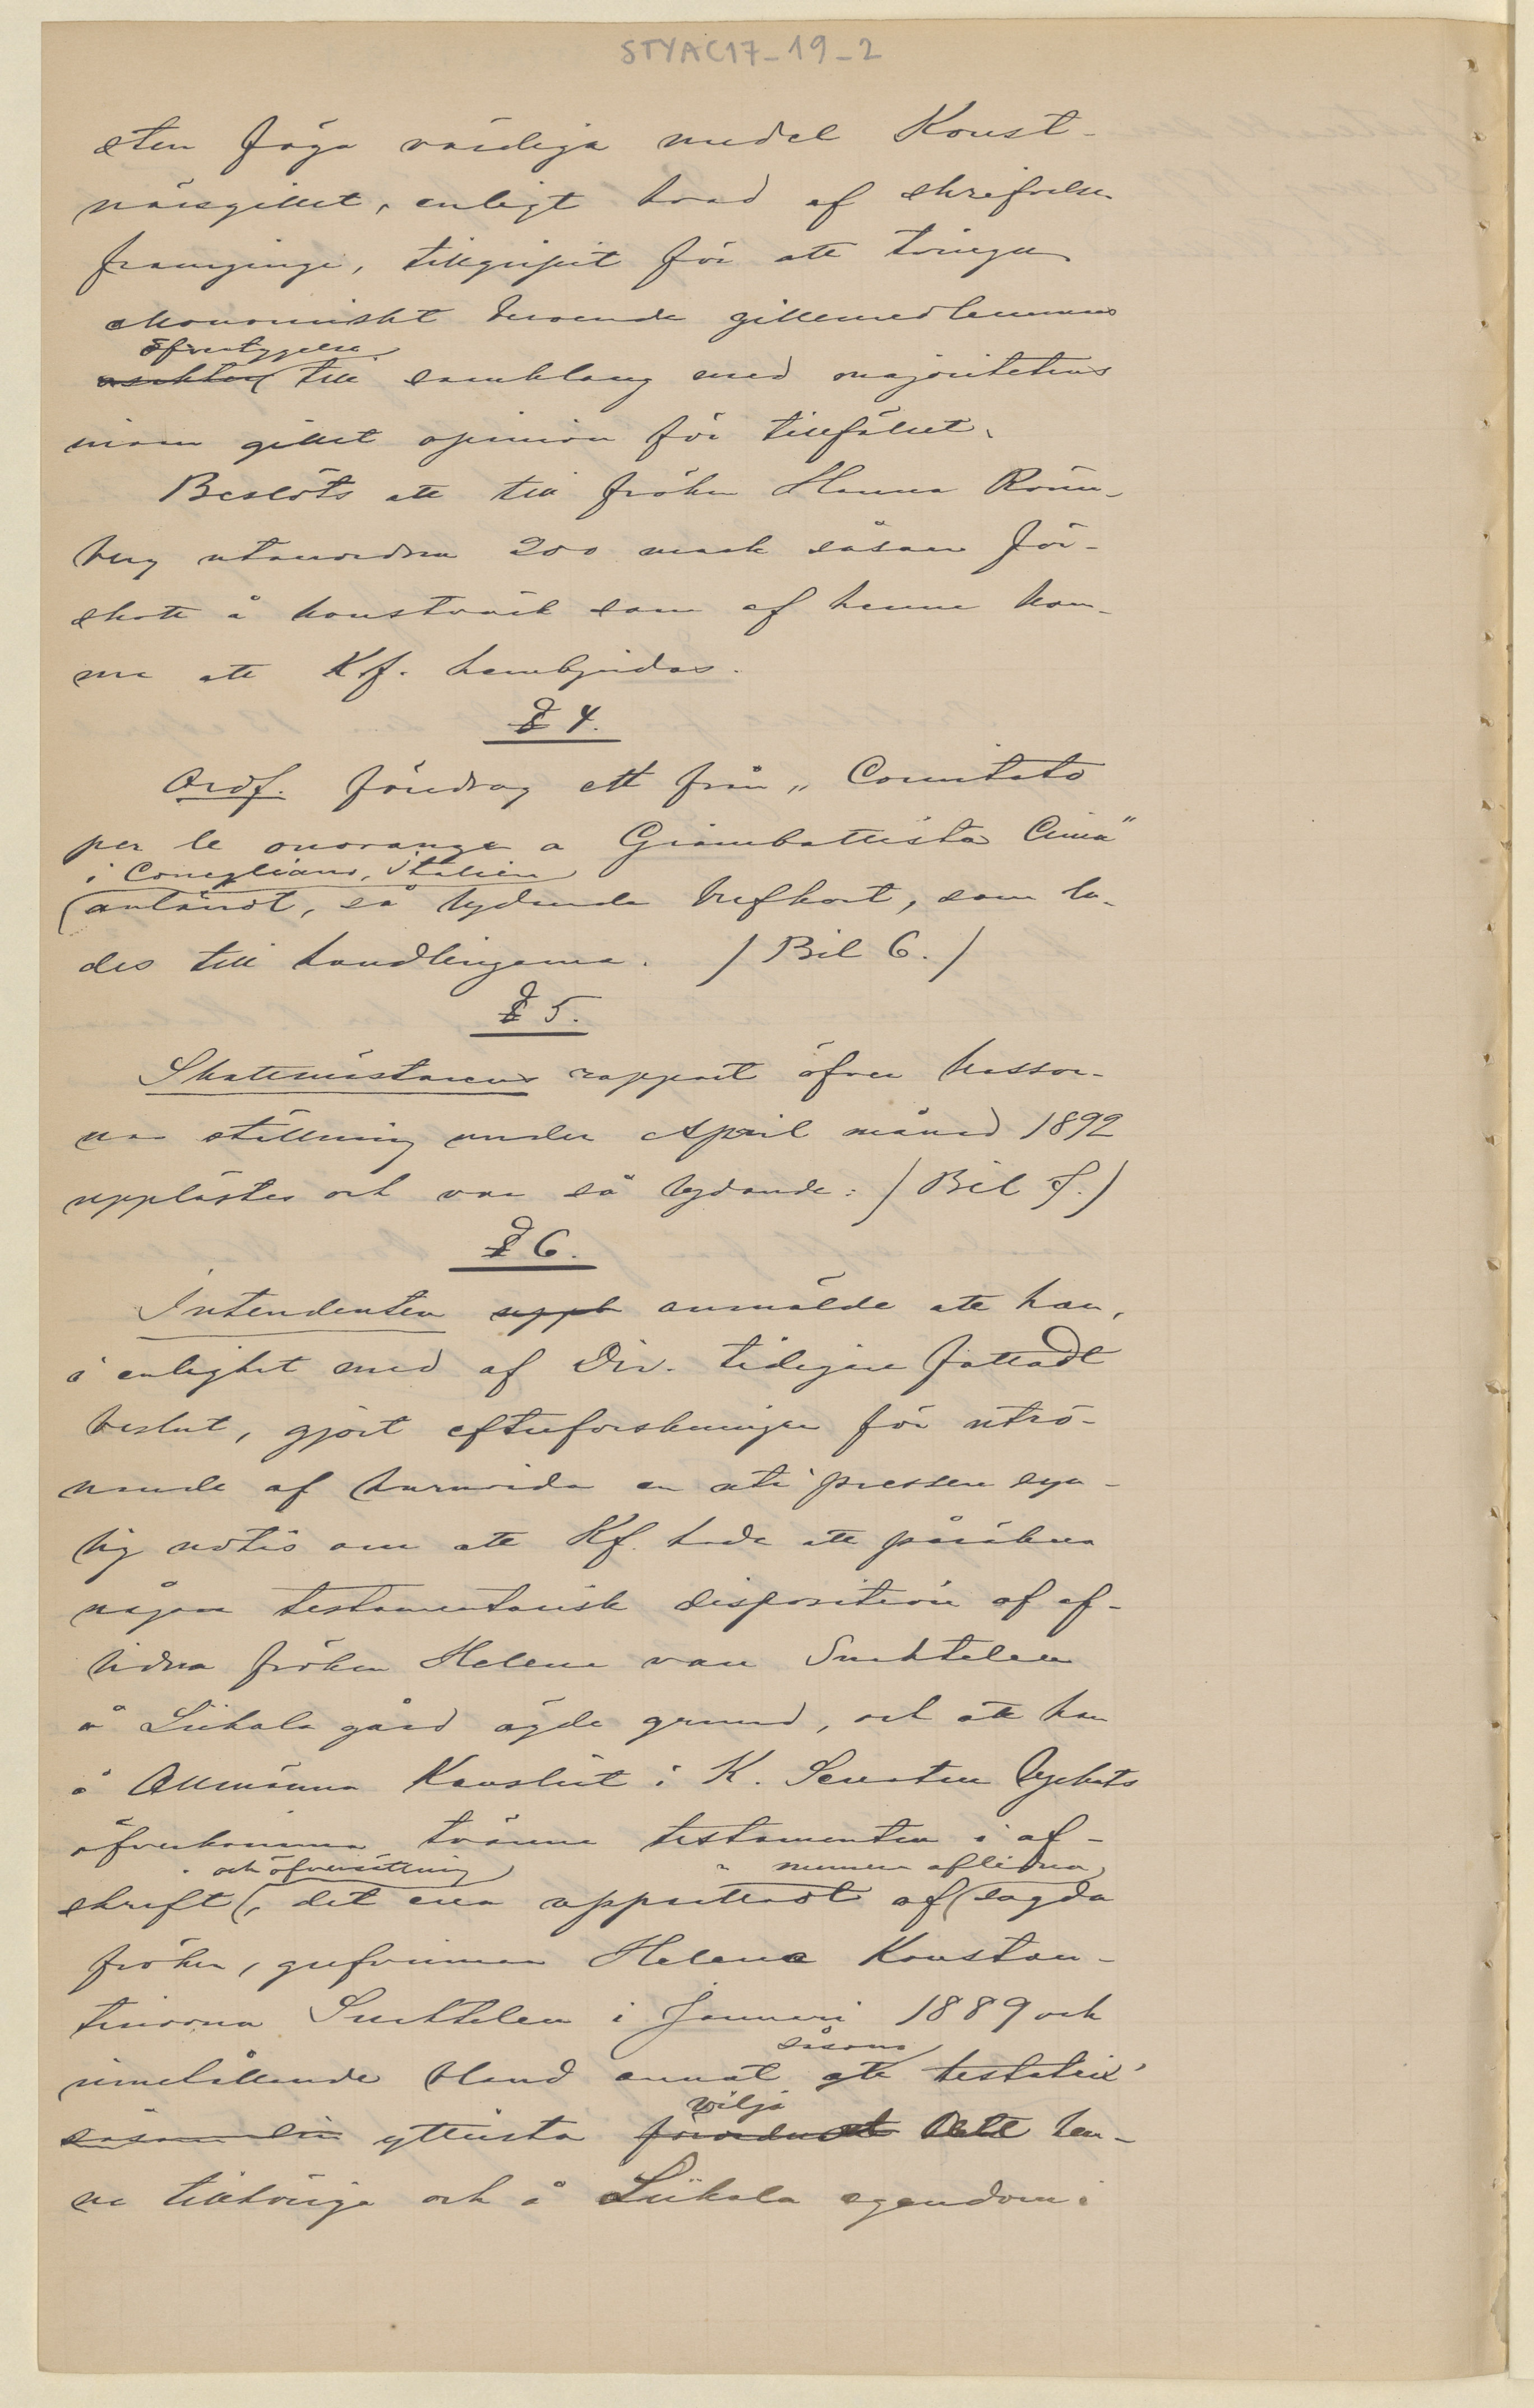 STYAC17-19-2
sten föga värdiga medel Konst-
närsgillet, enligt hvad af skrifvelsen
framginge, tillgripit för att tvinga
ekonomiskt beroende gillemedlemmars
öfvertygelse
åsikter till samklang med majoritetens
inom gillet opinion för tillfället.
Beslöts att till fröken Hanna Rönn-
berg utanordna 200 mark såsom för-
skott å konstverk som af henne kom-
me att Kf. hembjudas.
§ 4.
Ordf. föredrog ett från „Comitato
per le onoranze a Giambattista Cima"
i Conegliano, Italien
anländt, så lydande brefkort, som la-
des till handlingarna. / Bil 6. /
§ 5.
Skattmästarens rapport öfver kassor-
nas ställning under April månad 1892
upplästes och var så lydande: / Bil 7. /
§ 6.
Intendenten uppl anmälde att han,
i enlighet med af Dir. tidigare fattadt
beslut, gjort efterforskningar för utrö-
nande af huruvida en uti pressen syn-
lig notis om att Kf. hade att påräkna
någon testamentarisk disposition af af-
lidna fröken Helene van Suchtelen
å Liikala gård ägde grund, och att han
å Allmänna Kansliet i K. Senaten lyckats
öfverkomma tvänne testamenten i af-
och öfversättning numera aflidna
skrift, det ena upprättadt af sagda
fröken, grefvinnan Helena Konstan-
tinovna Suchtelen i Januari 1889 och
såsom
innehållande bland annat att testatrix'
vilja
såsom sin yttersta förordnat att hen-
ne tillhöriga och å Liikala egendom i